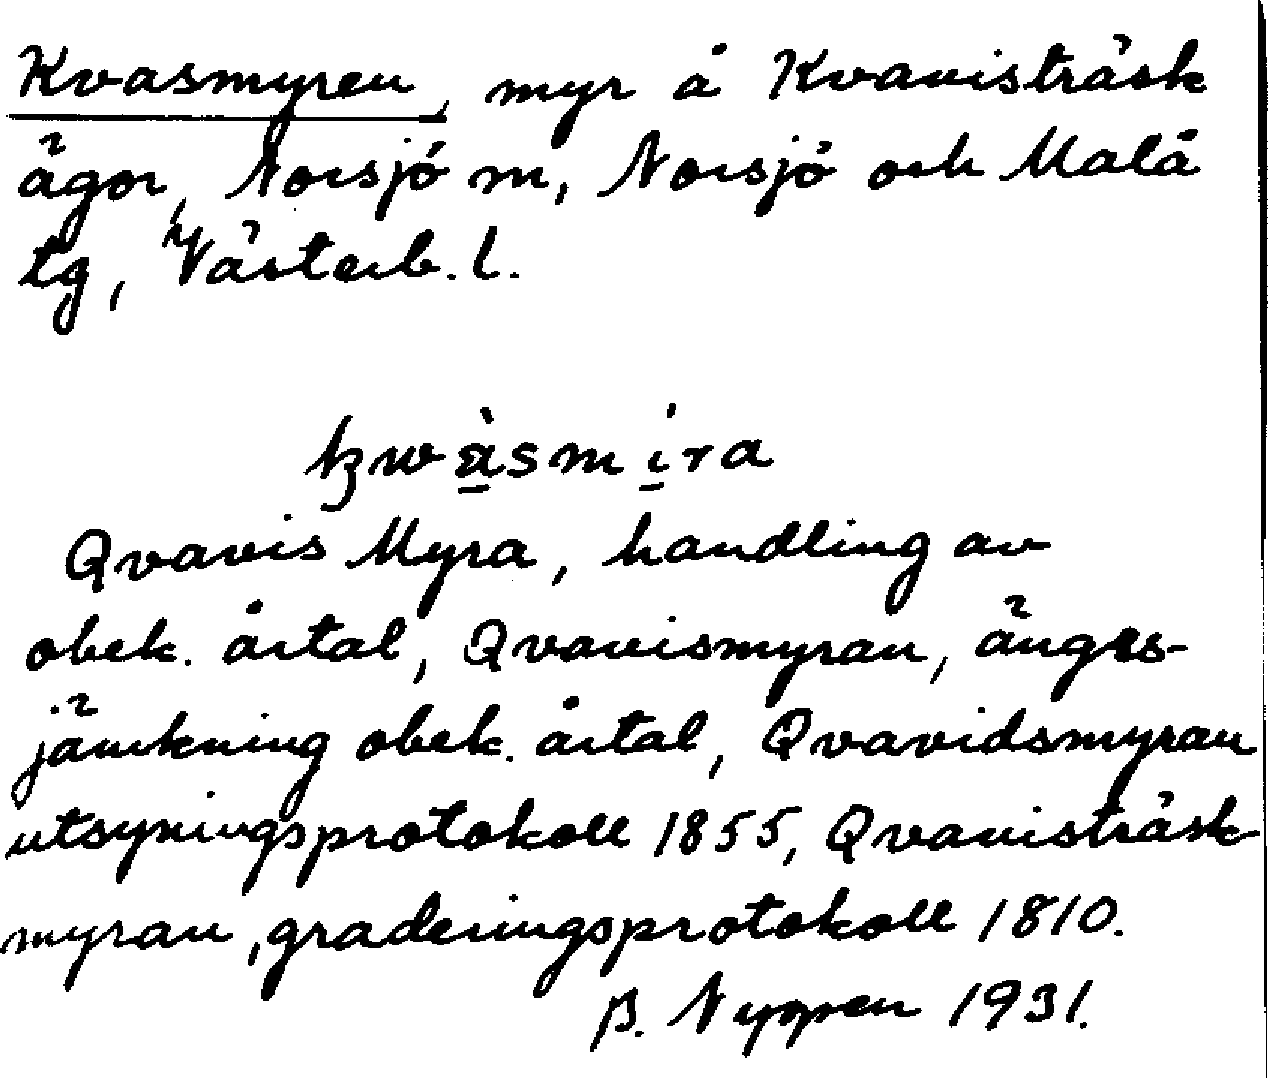 Kvasmyren, myr å Kvavisträsk
ägor, Norsjö m, Norsjö och Malå
tg, Västerb. l.
kwàsmíra
Qvavis Myra, handling av
obek. årtal, Qvavismyran, änges-
jämkning obek. årtal, Qvavidsmyran
utsyningsprotokoll 1855, Qvavisträsk
myran, graderingsprotokoll 1810.
B. Nygren 1931.